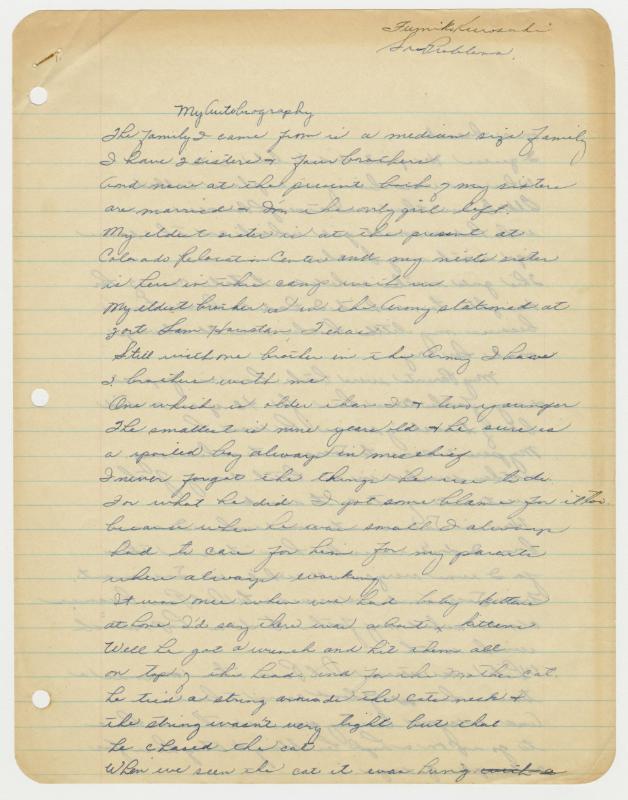 Fumiko Kurosaki
Sr Problems.
My Autobiography
The family I came from is a median size family
I have 2 sisters & four brothers
And now at the present both of my sisters
are married & I'm the only girl left.
My eldest sister is at the present at
Colorado Relocation Center and my next sister
is here in this camp with us
My eldest brother is in the Army stationed at
Fort Sam Houston, Texas
Still with one brother in the Army I have
3 brothers with me
One which is older than I & two younger
The smallest is nine years old & he sure is
a spoiled boy always in mischief
I never forget the things he use to do.
For what he did I got some blame for it too.
because when he was small I always
had to care for him for my parents
where always working
It was once when we had baby kittens
at home I'd say there was about 4 kittens
Well he got a wrench and hit them all
on top of the head, and for the mother cat
he tied a string around the cats neck &
the string wasn't very tight but that
he chased the cat
When we seen the cat it was hung with a